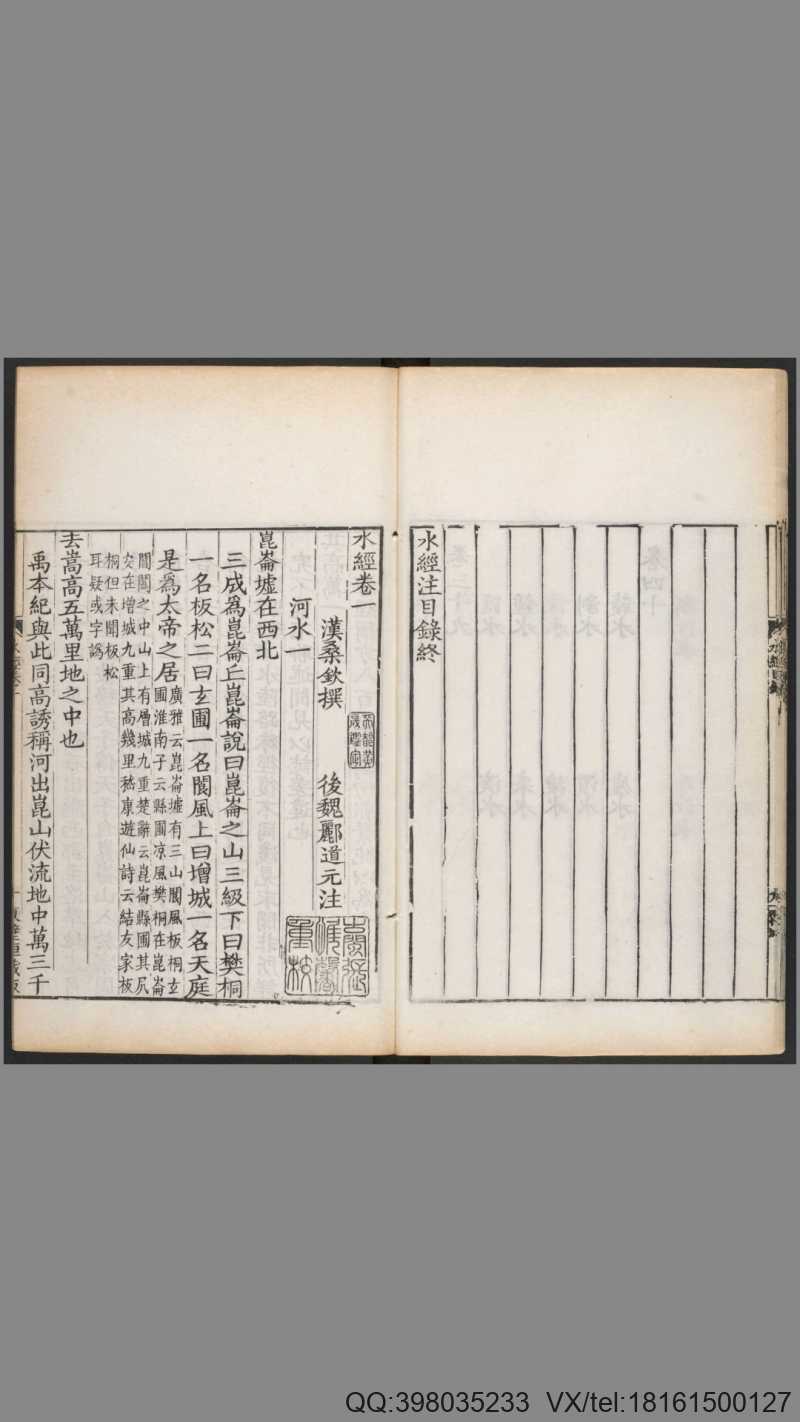 水經注目錄終
水經卷一
漢桑欽撰 後魏酈道元注
河水一
崑崙墟在西北
三成爲崑崙丘崑崙說曰崑崙之山三級下曰樊桐
一名板松二曰玄圃一名閬風上曰增城一名天庭
是爲太帝之居
廣雅云崑崙墟有三山閬風板桐玄
圃淮南子云縣圃涼風樊桐在崑崙
閶闔之中山上有層城九重楚辭云崑崙縣圃其凥
安在增城九重其高幾里嵇康遊仙詩云結友家板
桐但未聞板松
耳疑或字譌
去嵩高五萬里地之中也
禹本紀與此同高誘稱河出崑山伏流地中萬三千
QQ:398035233 VX/tel:18161500127